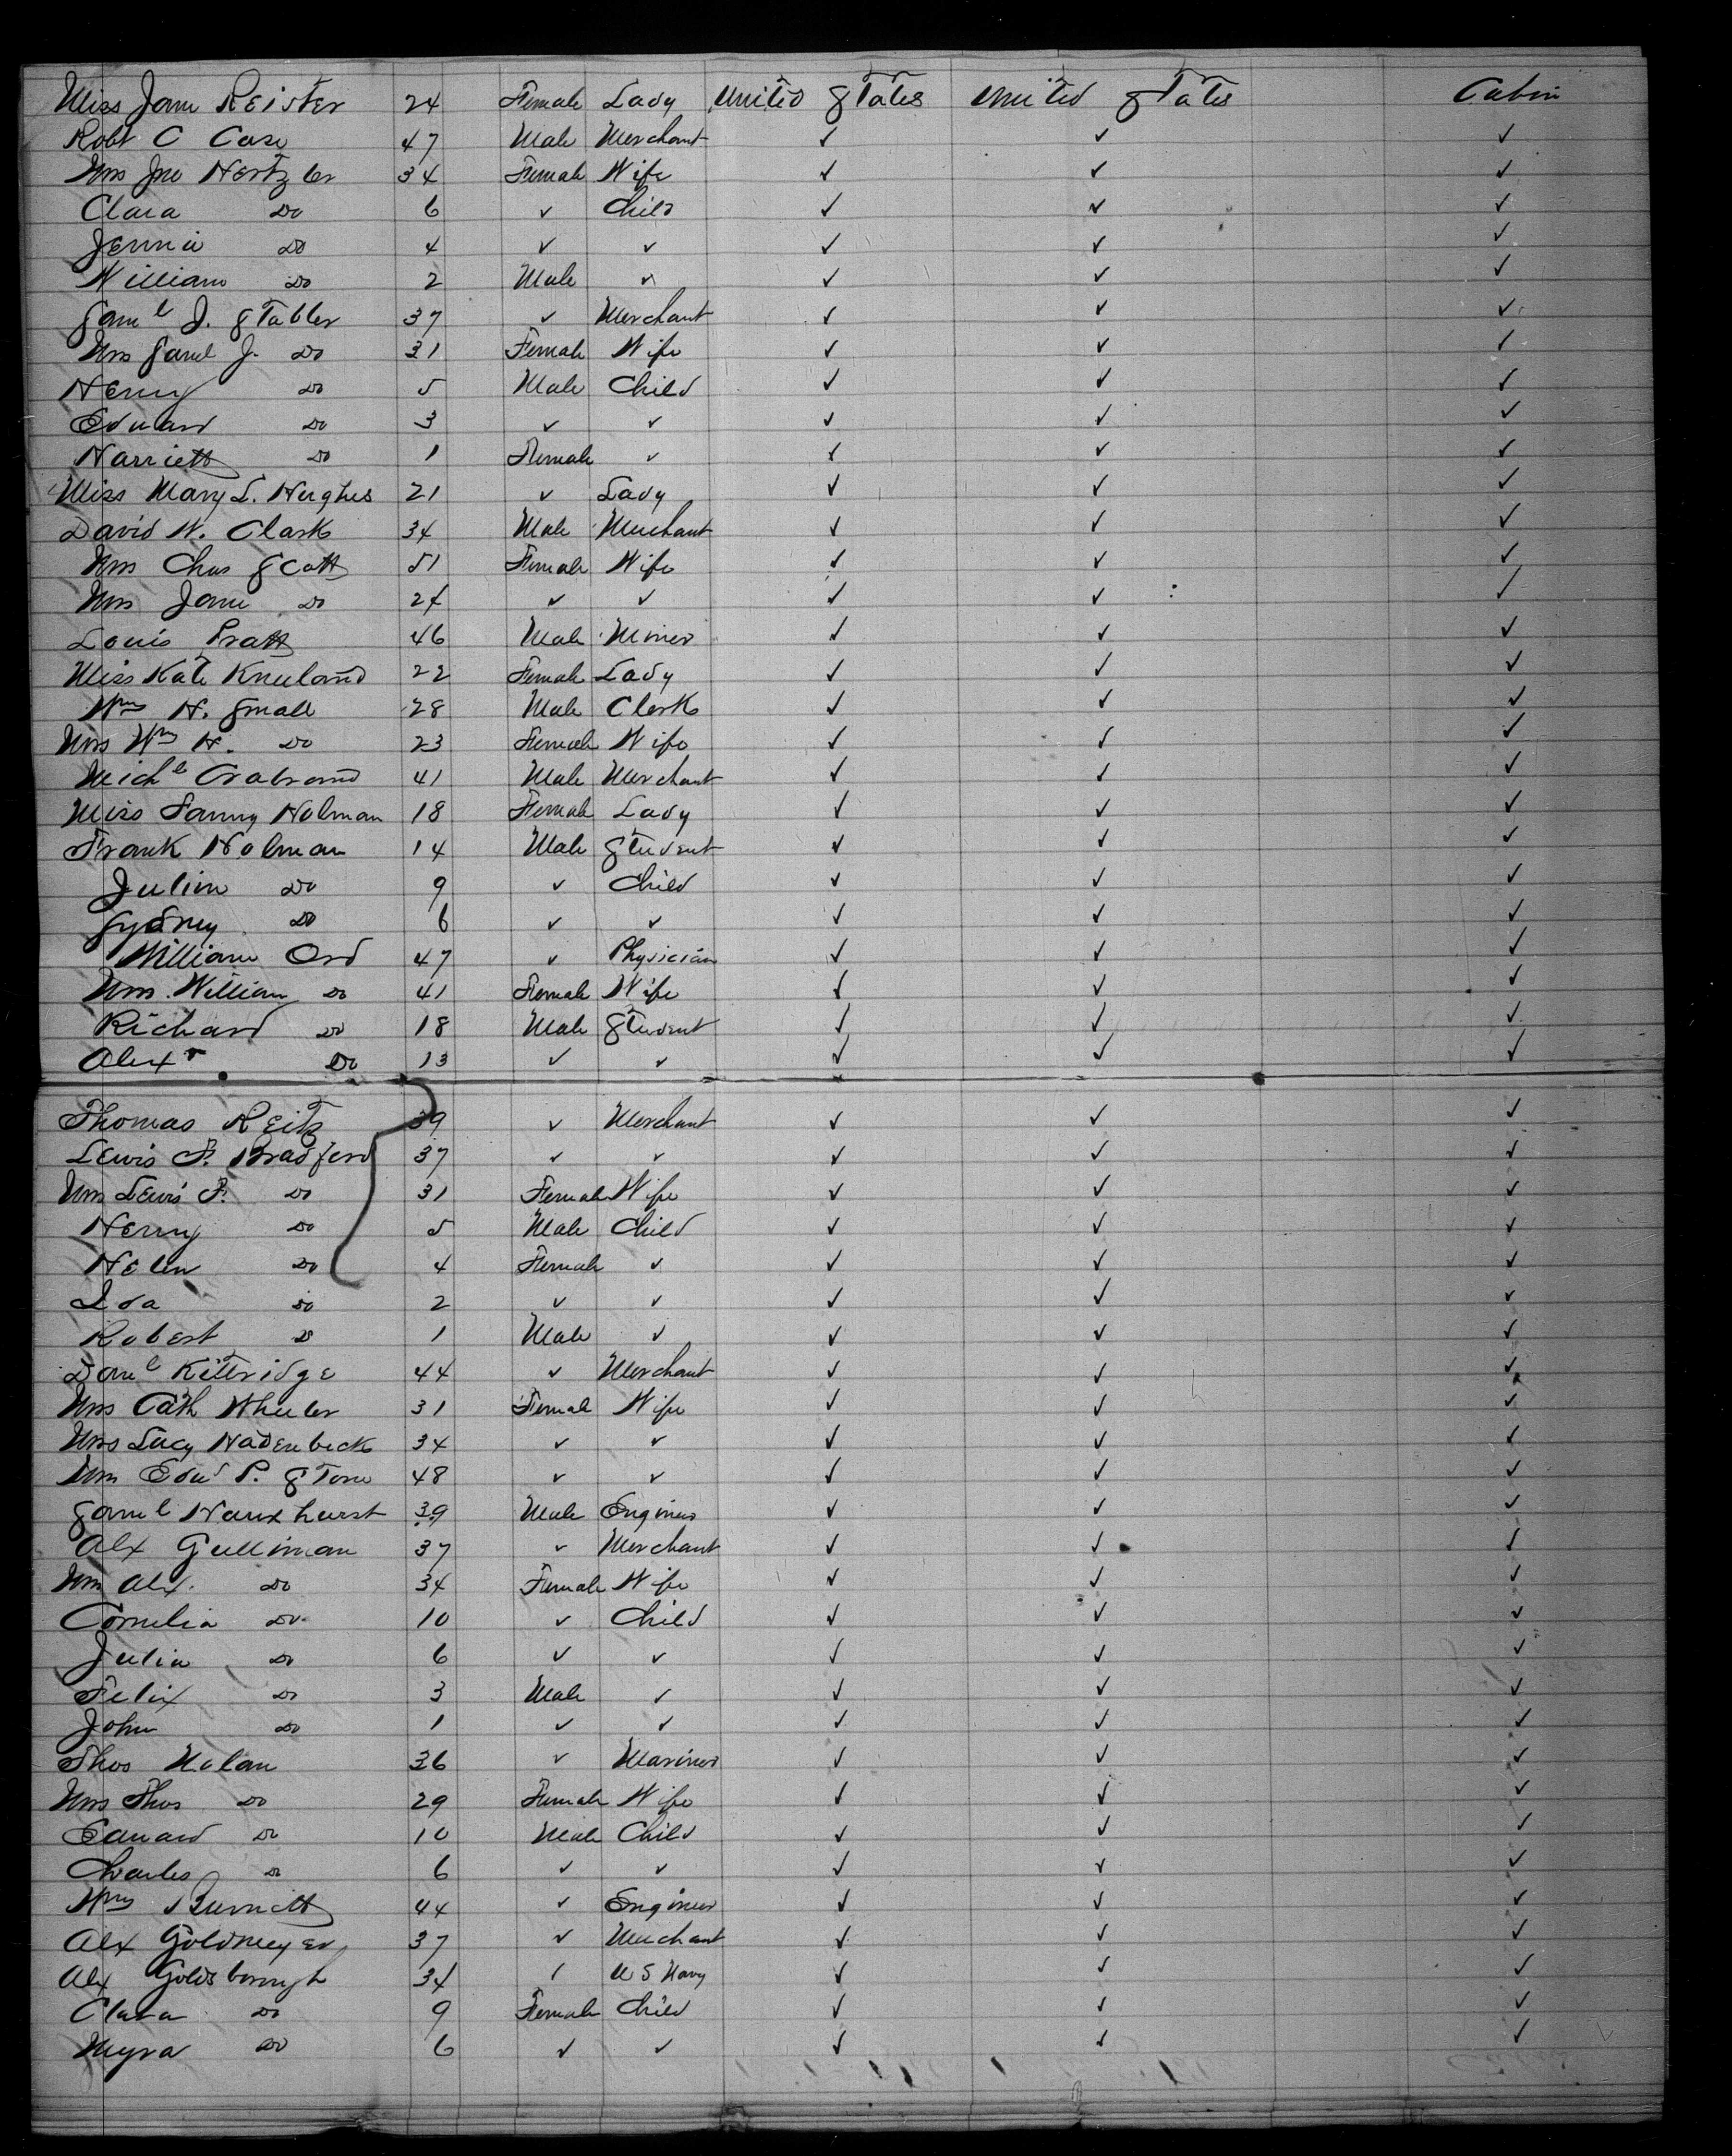 Miss Jane Reister 24 Female Lady United States United States Cabin
Robt C Case 47 Male Merchant ✓ ✓ ✓
Mrs Jno Hertzler 34 Female Wife ✓ ✓ ✓
Clara Do 6 ✓ Child ✓ ✓ ✓
Jennie Do 4 ✓ ✓ ✓ ✓ ✓
William Do 2 Male ✓ ✓ ✓ ✓
Saml J. Stabler 37 ✓ Merchant ✓ ✓ ✓
Mrs Saml J. Do 31 Female Wife ✓ ✓ ✓
Henry Do 5 Male Child ✓ ✓ ✓
Edward Do 3 ✓ ✓ ✓ ✓ ✓
Harriett Do 1 Female ✓ ✓ ✓ ✓
Miss Mary L. Hughes 21 ✓ Lady ✓ ✓ ✓
David W. Clark 34 Male Merchant ✓ ✓ ✓
Mrs Chas Scott 51 Female Wife ✓ ✓ ✓
Mrs Jane Do 24 ✓ ✓ ✓ ✓ ✓
Louis Pratt 46 Male Miner ✓ ✓ ✓
Miss Kate Kneeland 22 Female Lady ✓ ✓ ✓
Wm H. Small 28 Male Clerk ✓ ✓ ✓
Mrs Wm H. Do 23 Female Wife ✓ ✓ ✓
Michl 41 Male Merchant ✓ ✓ ✓
Miss Fanny Holman 18 Female Lady ✓ ✓ ✓
Frank Holman 14 Male Student ✓ ✓ ✓
Julien Do 9 ✓ Child ✓ ✓ ✓
Sydney Do 6 ✓ ✓ ✓ ✓ ✓
William Ord 47 ✓ Physician ✓ ✓ ✓
Mrs William Do 41 Female Wife ✓ ✓ ✓
Richard Do 18 Male Student ✓ ✓ ✓
Alexr Do 13 ✓ ✓ ✓ ✓ ✓
Thomas Reitz 39 ✓ Merchant ✓ ✓ ✓
Lewis F. Bradford 37 ✓ ✓ ✓ ✓ ✓
Mrs Lewis F. Do 31 Female Wife ✓ ✓ ✓
Henry Do 5 Male Child ✓ ✓ ✓
Helen Do 4 Female ✓ ✓ ✓ ✓
Ida Do 2 ✓ ✓ ✓ ✓ ✓
Robert Do 1 Male ✓ ✓ ✓ ✓
Danl Kittridge 44 ✓ Merchant ✓ ✓ ✓
Mrs Cath Wheeler 31 Female Wife ✓ ✓ ✓
Mrs Lucy Hadenbeck 34 ✓ ✓ ✓ ✓ ✓
Mrs Edwd P. Stone 48 ✓ ✓ ✓ ✓ ✓
Saml Hauxhurst 39 Male Engineer ✓ ✓ ✓
Alx Gulliman 37 ✓ Merchant ✓ ✓ ✓
Mrs Alx. Do 34 Female Wife ✓ ✓ ✓
Cornelia Do 10 ✓ Child ✓ ✓ ✓
Julia Do 6 ✓ ✓ ✓ ✓ ✓
Felix Do 3 Male ✓ ✓ ✓ ✓
John Do 1 ✓ ✓ ✓ ✓ ✓
Thos Nolan 36 ✓ Mariner ✓ ✓ ✓
Mrs Thos Do 29 Female Wife ✓ ✓ ✓
Edward Do 10 Male Child ✓ ✓ ✓
Charles Do 6 ✓ ✓ ✓ ✓ ✓
Wm Burnett 44 ✓ Engineer ✓ ✓ ✓
Alx Goldmeyer 37 ✓ Merchant ✓ ✓ ✓
Alx Goldsborough 34 ✓ U S Navy ✓ ✓ ✓
Clara Do 9 Female Child ✓ ✓ ✓
Myra Do 6 ✓ ✓ ✓ ✓ ✓